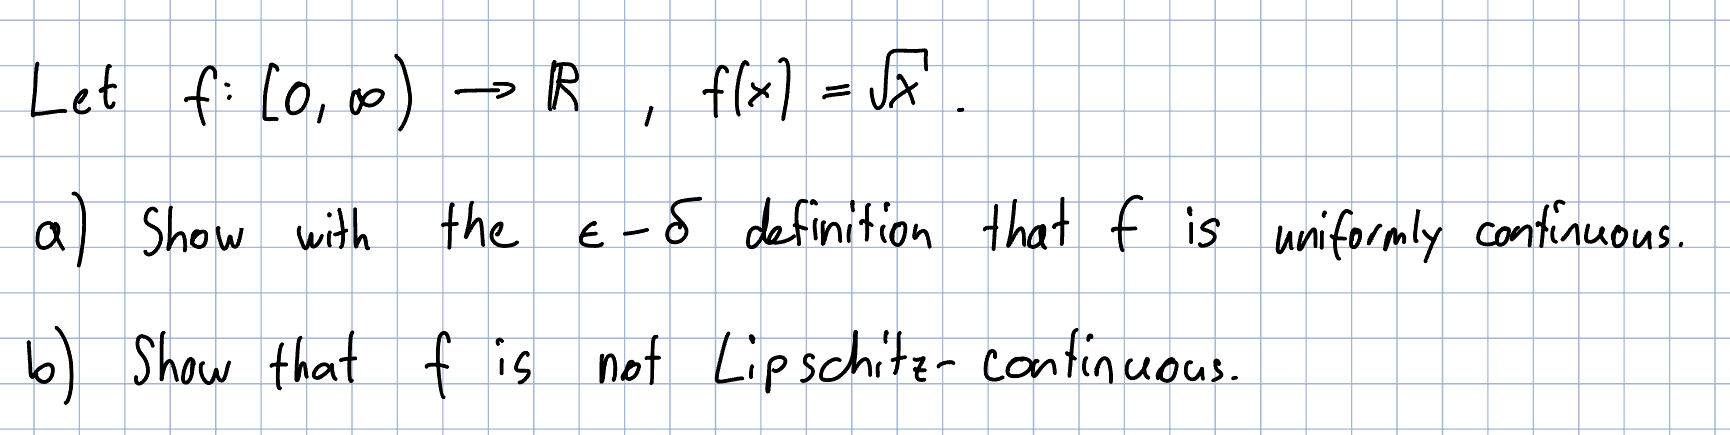 Let f: [0, ∞) → ℝ , f(x) = √x .
a) Show with the ϵ-δ definition that f is uniformly continuous.
b) Show that f is not Lipschitz-continuous.